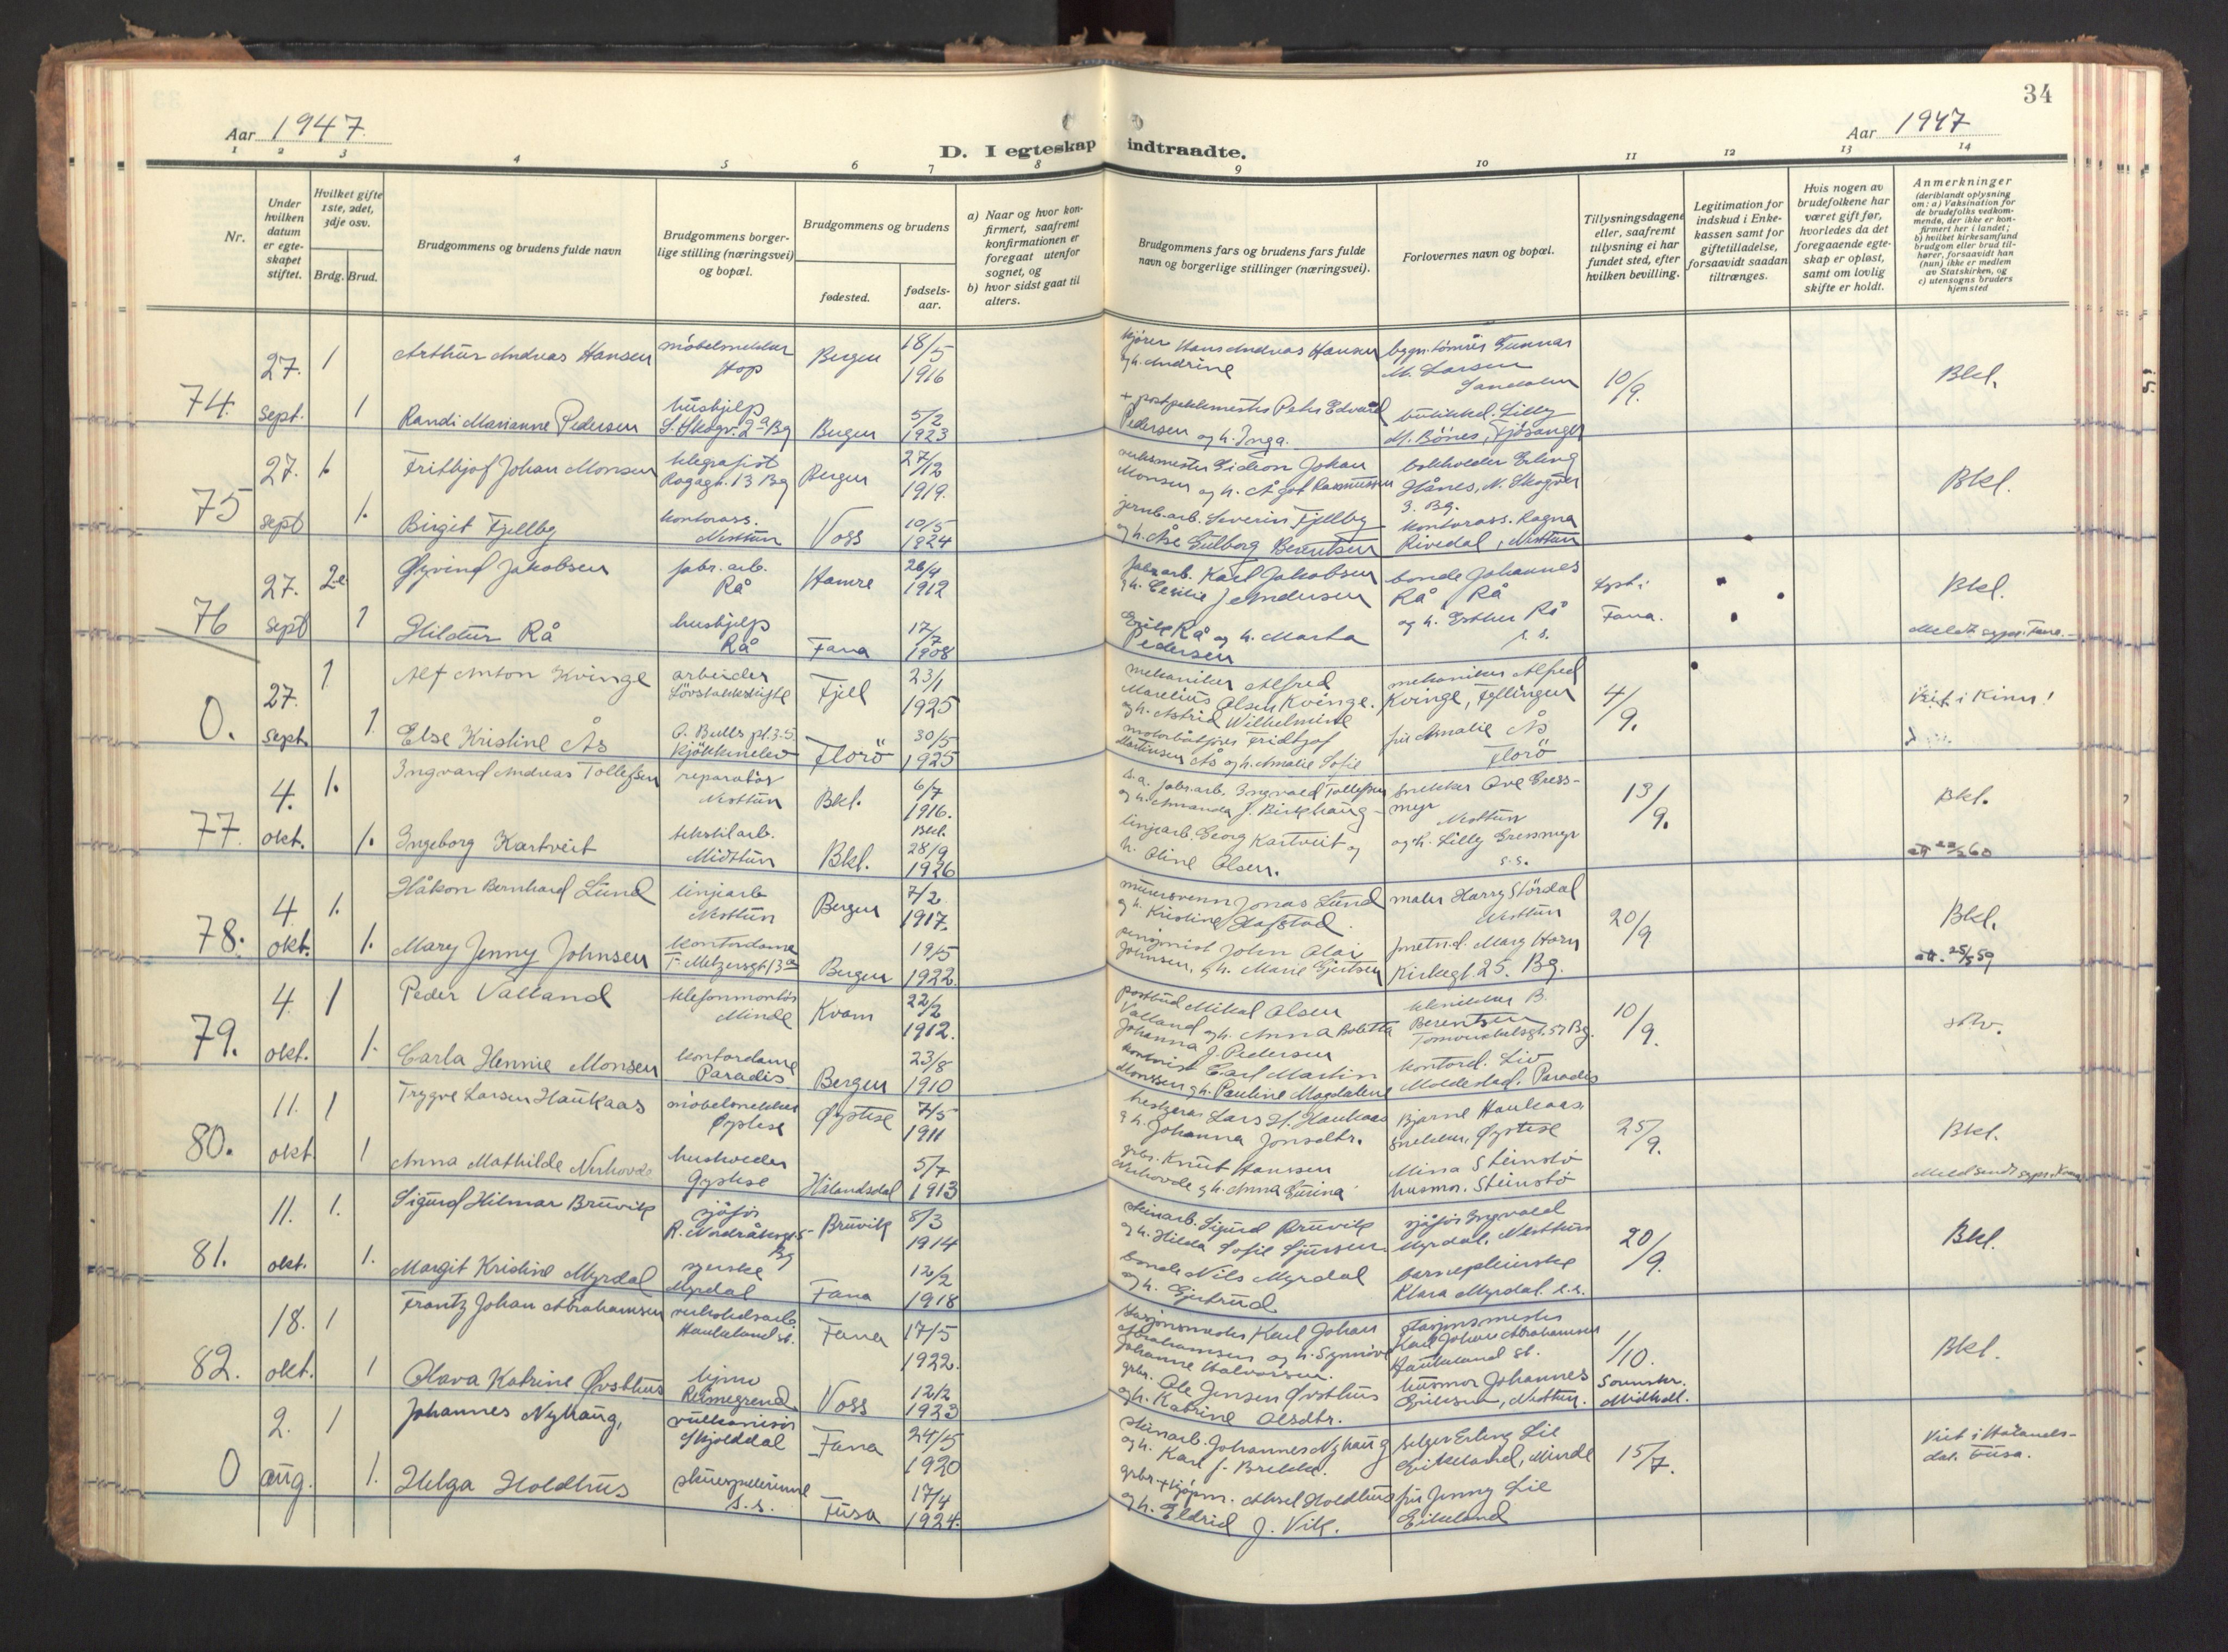 34
Aar 1947.
Aar 1947
D. I egteskap indtraadte.
1 2 3 4 5 6 7 8 9 10 11 12 13 14
Nr.
Under hvilken datum er egte-skapet stiftet.
Hvilket gifte 1ste, 2det, 3dje osv.
Brdg. Brud.
Brudgommens og brudens fulde navn
Brudgommens borger-lige stilling (næringsvei) og bopæl.
Brudgommens og brudens
fødested.
fødsels-aar.
a) Naar og hvor kon-firmert, saafremt konfirmationen er foregaat utenfor sognet, og
b) hvor sidst gaat til alters.
Brudgommens fars og brudens fars fulde navn og borgerlige stillinger (næringsvei).
Forlovernes navn og bopæl.
Tillysningsdagene eller, saafremt tillysning ei har fundet sted, efter hvilken bevilling.
Legitimation for indskud i Enke-kassen samt for giftetilladelse, forsaavidt saadan tiltrænges.
Hvis nogen av brudefolkene har været gift før, hvorledes da det foregaaende egte-skap er opløst, samt om lovlig skifte er holdt.
Anmerkninger
(deriblandt oplysning om: a) Vaksination for de brudefolks vedkom-mende, der ikke er kon-firmert her i landet; b) hvilket kirkesamfund brudgom eller brud til-hører, forsaavidt han (hun) ikke er medlem av Statskirken, og c) utensogns bruders hjemsted
74. 27. sept. 1 Arthur Andreas Hansen møbelsnekker Hop Bergen 18/5 1916 Hans Andreas Hansen og h. Andrine Gunnar M. Larsen 10/9. Bkl.
1 Randi Marianne Pedersen hushjelp Bergen 5/2 1923 Peter Edvard Pedersen og h. Inga. Lilly M. Bönes, Fjösanger
75 27. sept 1. Frithjof Johan Monsen telegrafist 13 Bg Bergen 27/12 1919. Gideon Johan Monsen og h. bokholder Erling Hånes, N. Skogvei 3. Bg. Bkl.
1. Birgit Fjellby kontorass. Nesttun Voss 10/5 1924 jernb.arb. Severin Fjellby og h. Åse Gulborg Berentsen kontorass. Ragna Rivedal, Nesttun
76 27. sept 2e Øyvind Jakobsen fabr. arb. Rå Hamre 26/4 1912 fabr.arb. Karl Jakobsen og h. Cecilie J. Andersen bonde Johannes Rå Rå Lyst i Fana. Bkl.
1 Hildur Rå hushjelp Rå Fana 17/7 1908 Erik Rå og h. Marta Pedersen og h. Esther Rå s. s.
0. 27. sept. 1 Alf Anton Kvinge arbeider Fjell 23/1 1925 mekaniker Alfred Marelius Olsen Kvinge. og h. Astrid Wilhelmine mekaniker Alfred Kvinge, Fyllingen 4/9. Viet i Kinn!
1 Else Kristine Ås O. Bulls pl. 3-5 Florö 30/5 1925 Fridtjof Martinsen Ås og h. Amalie Sofie fru Amalie Ås Florö
77. 4. okt. 1. Ingvard Andreas Tollefsen reparatör Nesttun Bkl. 6/7 1916. fabr.arb. Ingvald Tollefsen og h. Amanda J. Birkhaug snekker Ove Gress-myr Nesttun 13/9. Bkl.
1. Ingeborg Kartveit tekstilarb. Midttun Bkl. Bkl. 28/9 1926 linjearb. Georg Kartveit og h. Oline Olsen. og h. Lilly Gressmyr s.s.
78. 4. okt. 1. Håkon Bernhard Lund linjearb Nesttun Bergen 7/2 1917. Jonas Lund og h. Kristine Hafstad. maler Harry Stördal Nesttun 20/9 Bkl.
1. Mary Jenny Johnsen kontordame Bergen 19/5 1922. pensjonist John Olai Johnsen, og h. Marie Gjertsen Mary Horn Kirkegt. 25. Bg. att. 25/5 59
79. 4. okt. 1 Peder Valland telefonmontör Minde Kvam 22/2 1912. postbud Mikal Olsen Valland og h. Anna Boletta Johanna J. Pedersen B. Berentsen 57 Bg. 10/9.
1. Carla Hennie Monsen kontordame Paradis Bergen 23/8 1910 Carl Martin Monssen og h. Pauline Magdalene kontord. Liv Moldestad. Paradis
80. 11. okt. 1 Trygve Larsen Haukaas møbelsnekker Øystese Øystese 7/5 1911 Lars H. Haukaas og h. Johanna Jonsdtr. Bjarne Haukaas snekker, Øystese 25/9. Bkl.
1 Anna Mathilde Nerhovde Øystese Hålandsdal 5/7 1913 grbr. Knut Hanssen Nerhovde og h. Anna Gurina Mina Steinstö husmor. Steinstö
81. 11. okt. 1. Sigurd Hilmar Bruvik sjåfør Bg Bruvik 8/3 1914 Sigurd Bruvik og h. Hilda Sofie Sjursen sjåfør Ingvald Myrdal, Nesttun 20/9. Bkl.
1. Margit Kristine Myrdal syerske Myrdal Fana 12/2 1918 bonde Nils Myrdal og h. Gjertrud barnepleierske Klara Myrdal. s.s.
82. 18. okt. 1 Frantz Johan Abrahamsen Haukeland st. Fana 17/5 1922. stasjonsmester Karl Johan Abrahamsen og h. Synnöve Johanne Halvorsen. stasjonsmester Karl Johan Abrahamsen Haukeland st. 1/10. Bkl.
1 Olava Katrine Øvsthus Reimegrend Voss 12/2 1923 grbr. Ole Jensen Øvsthus og h. Katrine Olsdtr. Johannes Eriksen, Nesttun.
0 2. aug. 1 Johannes Nyhaug, vulkanisör Skjolddal Fana 24/5 1920 Johannes Nyhaug og h. Kari J. Brekke. selger Erling Lie Eikeland, Minde 15/7. Viet i Hålands-dal. Fusa.
1. Helga Holdhus s.s. Fusa 17/4 1924. grbr. + kjøpm. Aksel Holdhus og h. Eldrid J. Vik. fru Jenny Lie Eikeland